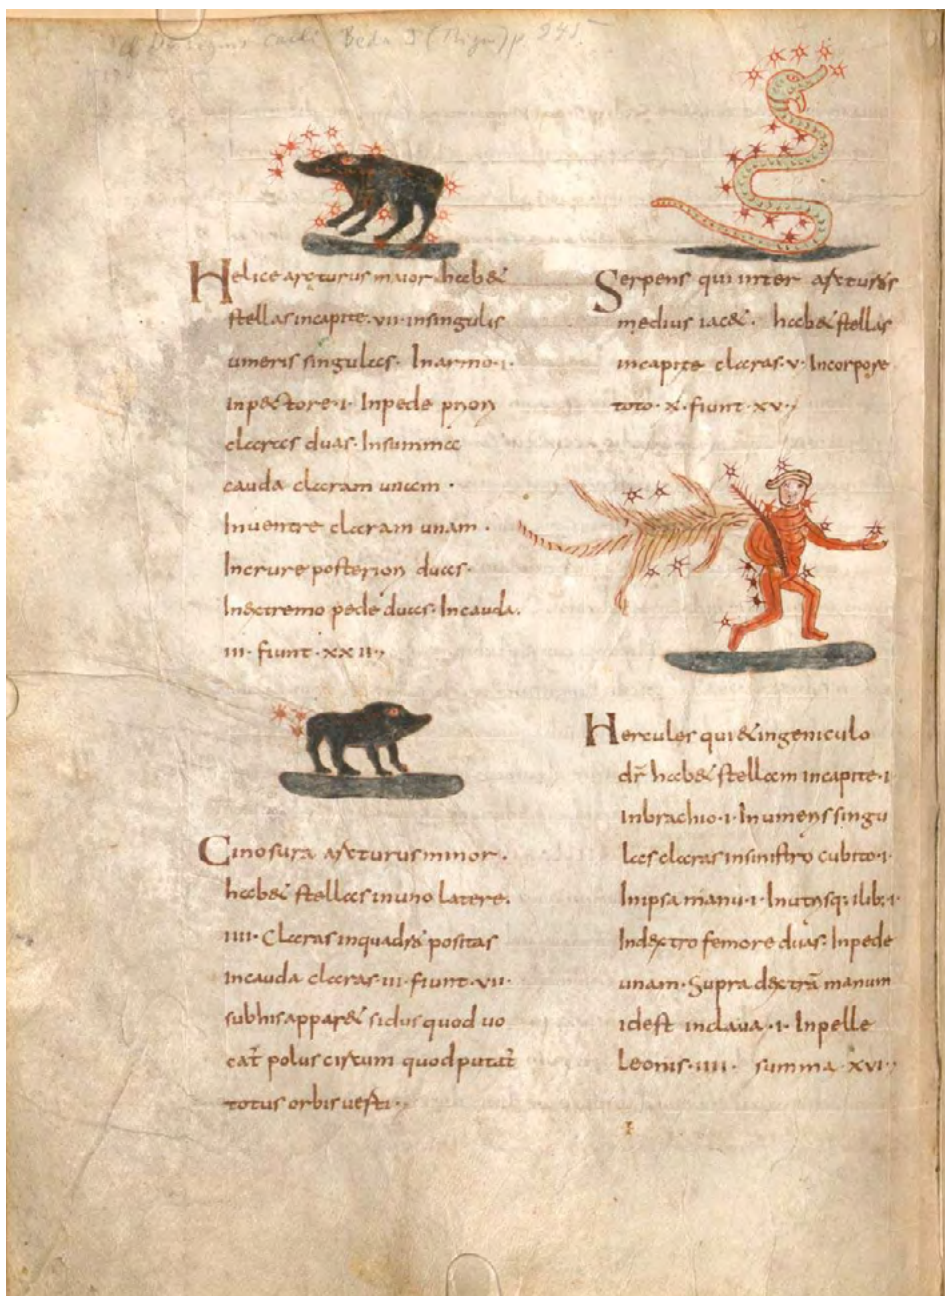 De signis caeli Beda
Helice arcturus maior habet
stellas incapite. vii. insingulis
umeris singulas. Inarmo. i.
inpectore. i. Inpede priori
claras duas. Insumma
cauda claram unam.
Inventre claram unam.
Incrure posteriori duas.
Inextremo pede duas. Incauda.
iii. fiunt. xxii.
Cinosura arcturus minor.
habet stellas inuno latere.
iiii. Claras inquadro positas
incauda claras. iii. fiunt. vii.
subhis apparet sidus quod uo
cat polus quod putat
totus orbis
Serpens qui inter arcturos
medius iacet. habet stellas
incapite claras. v. Incorpore
toto. x. fiunt. xv.
Hercules qui et ingeniculo
dr̄ habet stellam incapite. i
inbrachio. i. Inumeris singu
las claras insinistro cubito. i.
Inipsa manu. i. Inutrisq; ilib; i.
Indextro femore duas. Inpede
unam. Supra dextrā manum
idest inclava. i. Inpelle
leonis. iiii. summa. xvi.